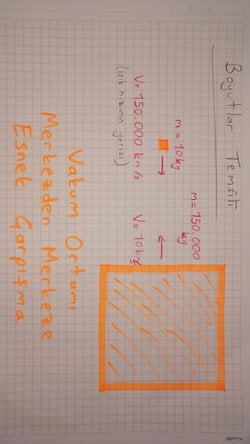 Boyutlar Temsili
m = 10 kg
V = 150.000 km/s
(ışık hızının yarısı)
m = 150.000
kg
V = 10 km/s
Vakum Ortamı
Merkezden Merkeze
Esnek Çarpışma